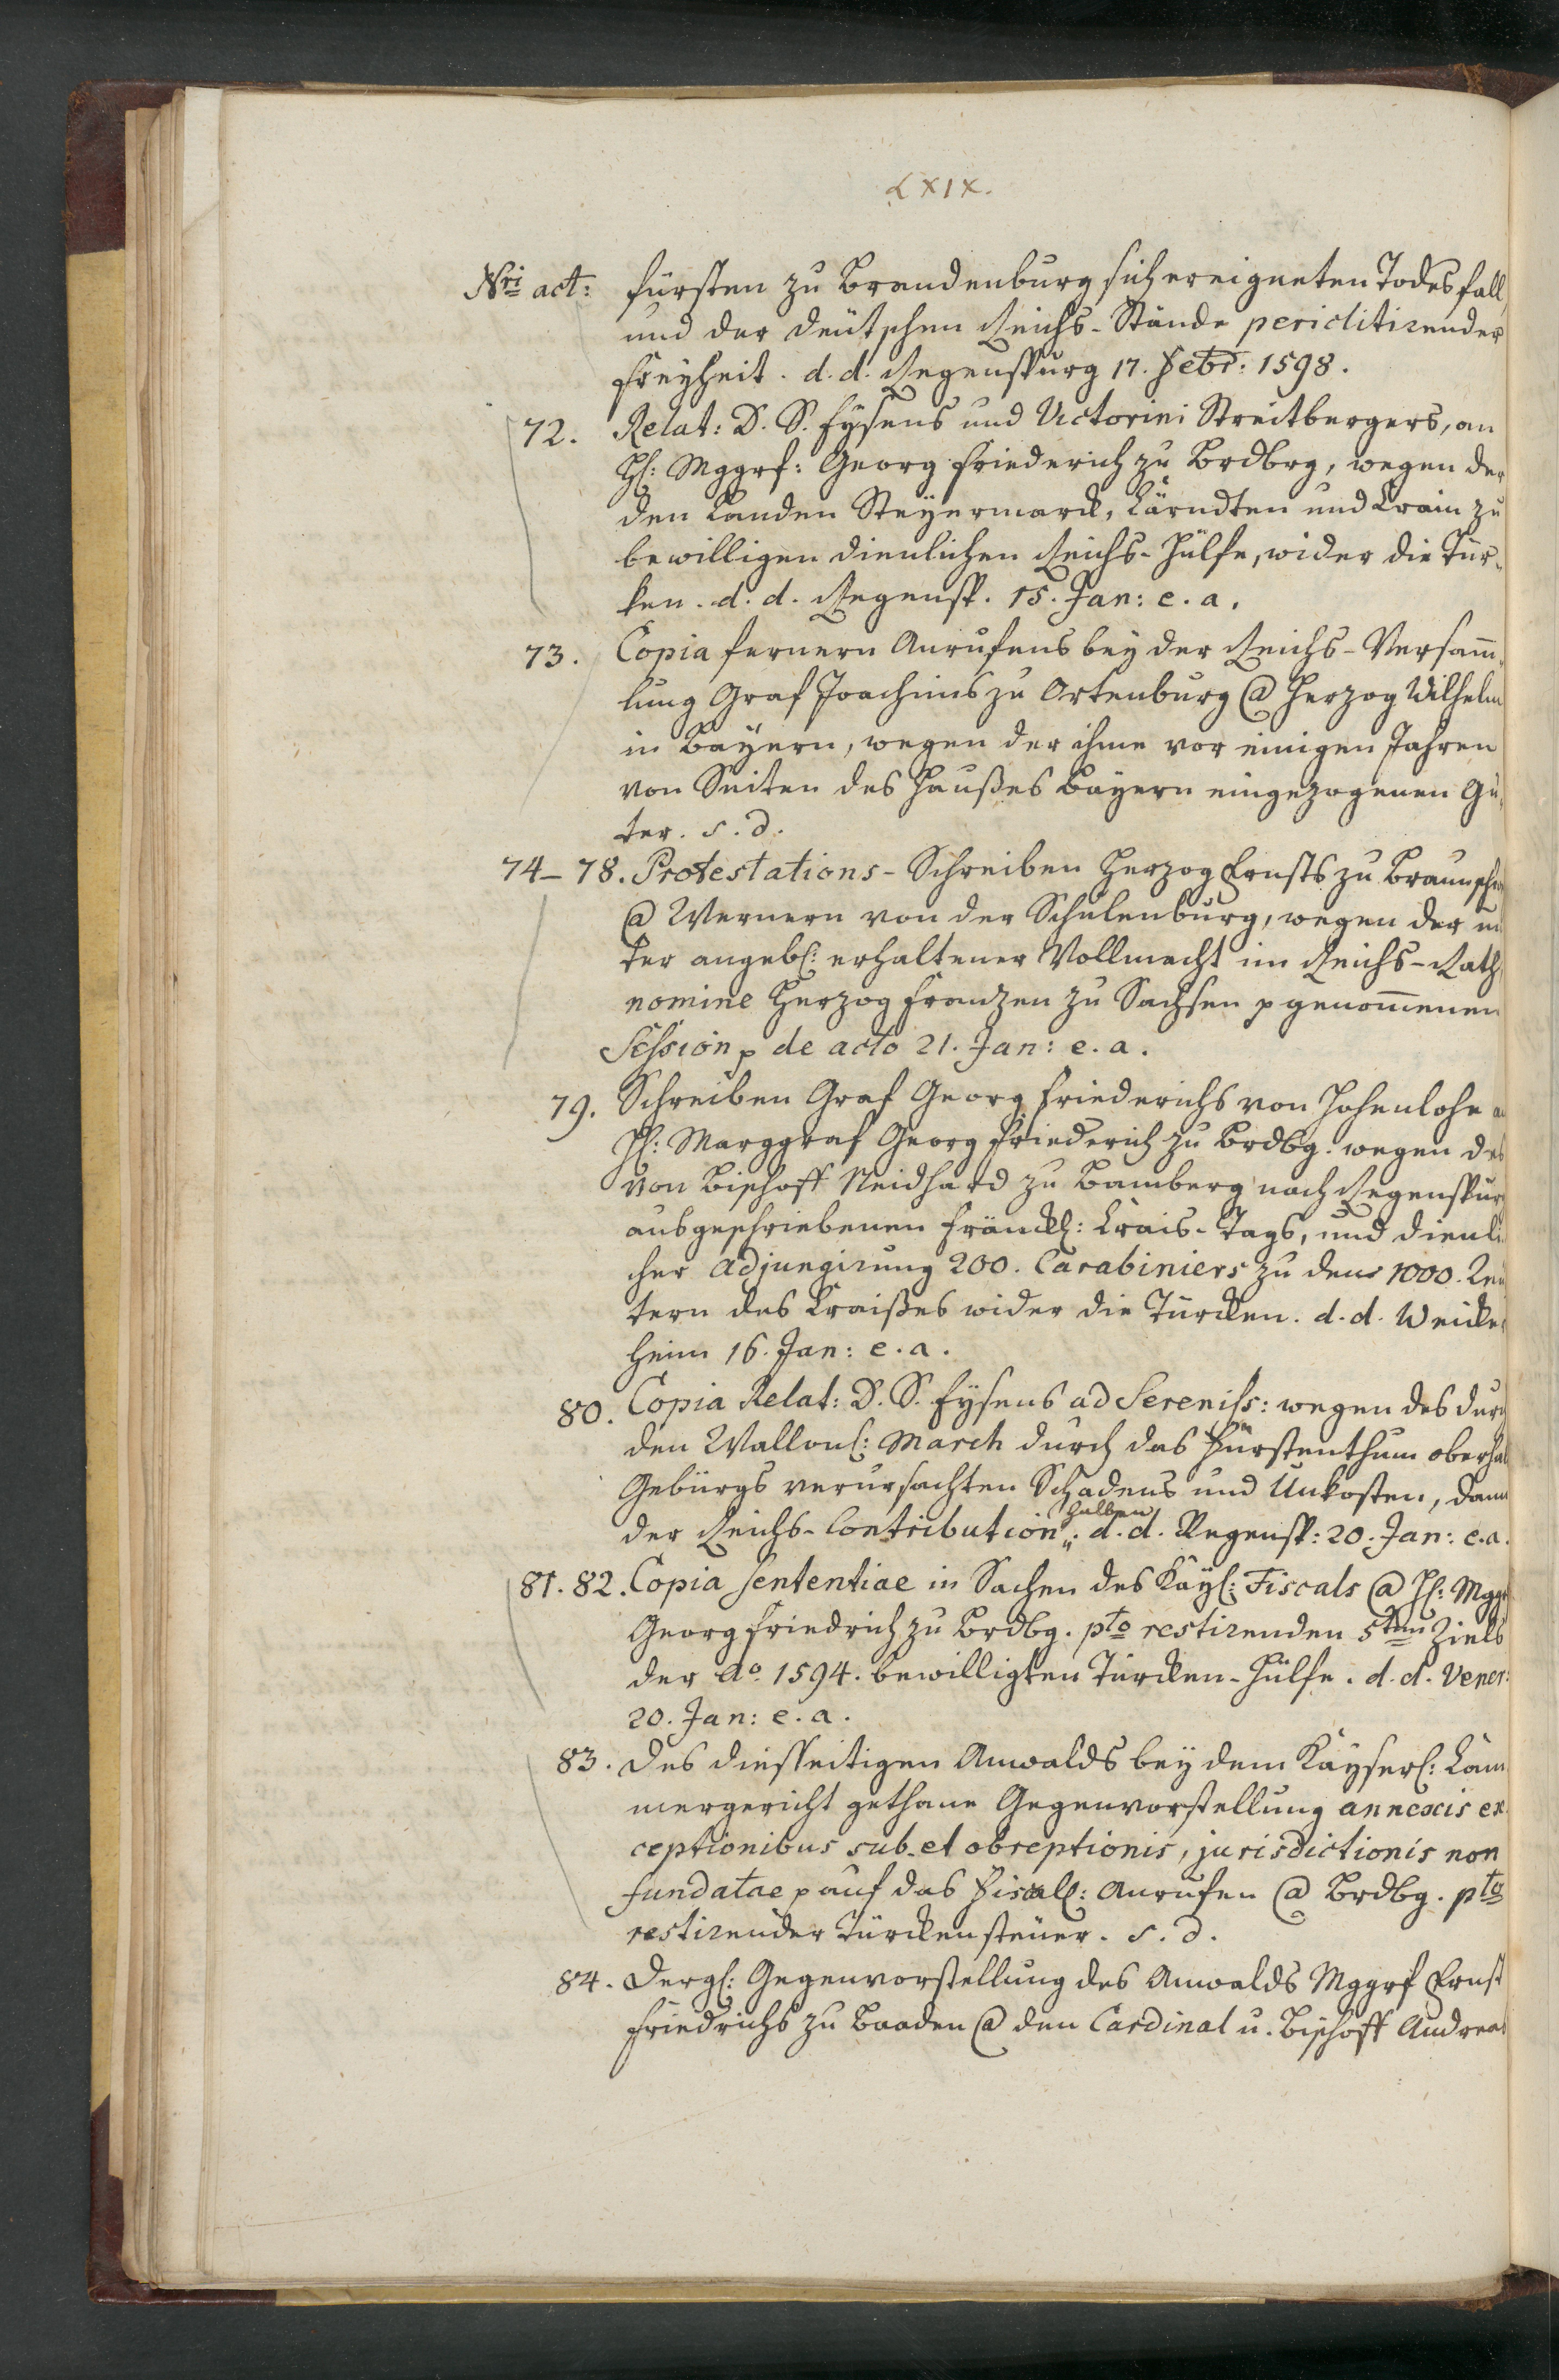 LXIX.
Nri act: fürsten zu Brandenburg sich ereigneten Todesfall,
und der deütschen Reichs-Stände periclitirender
Freyheit. d. d. Regenspurg 17. Febr: 1598.
72. Relat: D. S. Eysens und Victorini Streitbergers, an
H: Mggrf: Georg Friederich zu Brdbrg, wegen der
den Landen Steyermarck, Kärndten und Crain zu
bewilligen dienlichen Reichs-Hülfe, wider die Tür-
ken. d. d. Regensp. 15. Jan: e. a.
73. Copia fernern Anrufens bey der Reichs-Versam̅-
lung Graf Joachims zu Ortenburg @ Herzog Wilhelm
in Bayern, wegen der ihme vor einigen Jahren
von Seiten des Haußes Bayern eingezogenen Gü-
ter. s. d.
74-78. Protestations-Schreiben Herzog Ernsts zu Braunschw
@ Wernern von der Schulenburg, wegen der un
ter angebl: erhaltener Vollmacht im Reichs-Rath
nomine Herzog Franzen zu Sachsen p genom̅enen
Session p de acto 21. Jan: e. a.
79. Schreiben Graf Georg Friederichs von Hohenlohe a
H: Marggraf Georg Friederich zu Brdbg. wegen des
von Bischoff Neidhard zu Bamberg nach Regenspurg
ausgeschriebenen Fränckl: Crais-Tags, und dienli
cher Adjungirung 200. Carabiniers zu den 1000. Reu
tern des Craißes wider die Türcken. d. d. Weicke
heim 16. Jan: e. a.
80. Copia Relat: D. S. Eysens ad Sereniss: wegen des durch
den Wallon: March durch das Fürstenthum oberhal
Gebürgs verursachten Schadens und Unkosten, dann
der Reichs-Contribution halben. d. d. Regensp: 20. Jan: e. a.
81. 82. Copia sententiae in Sachen des Kayl: Fiscals @ H: Mggr
Georg Friedrich zu Brdbg. pto restirenden 5ten Ziels
der Ao. 1594. bewilligten Türcken-Hülfe. d. d. Vener:
20. Jan: e. a.
83. Des diesseitigen Anwalds bey dem Kayserl: Cam
mergericht gethane Gegenvorstellung annexis ex
ceptionibus sub- et obreptionis, jurisdictionis non
fundatae p auf das Fiscal: Anrufen @ Brdbg. pto
restirender Türckensteuer. s. d.
84. Dergl: Gegenvorstellung des Anwalds Mggrf Ernst
Friedrichs zu Baaden @ den Cardinal u. Bischoff Andreas